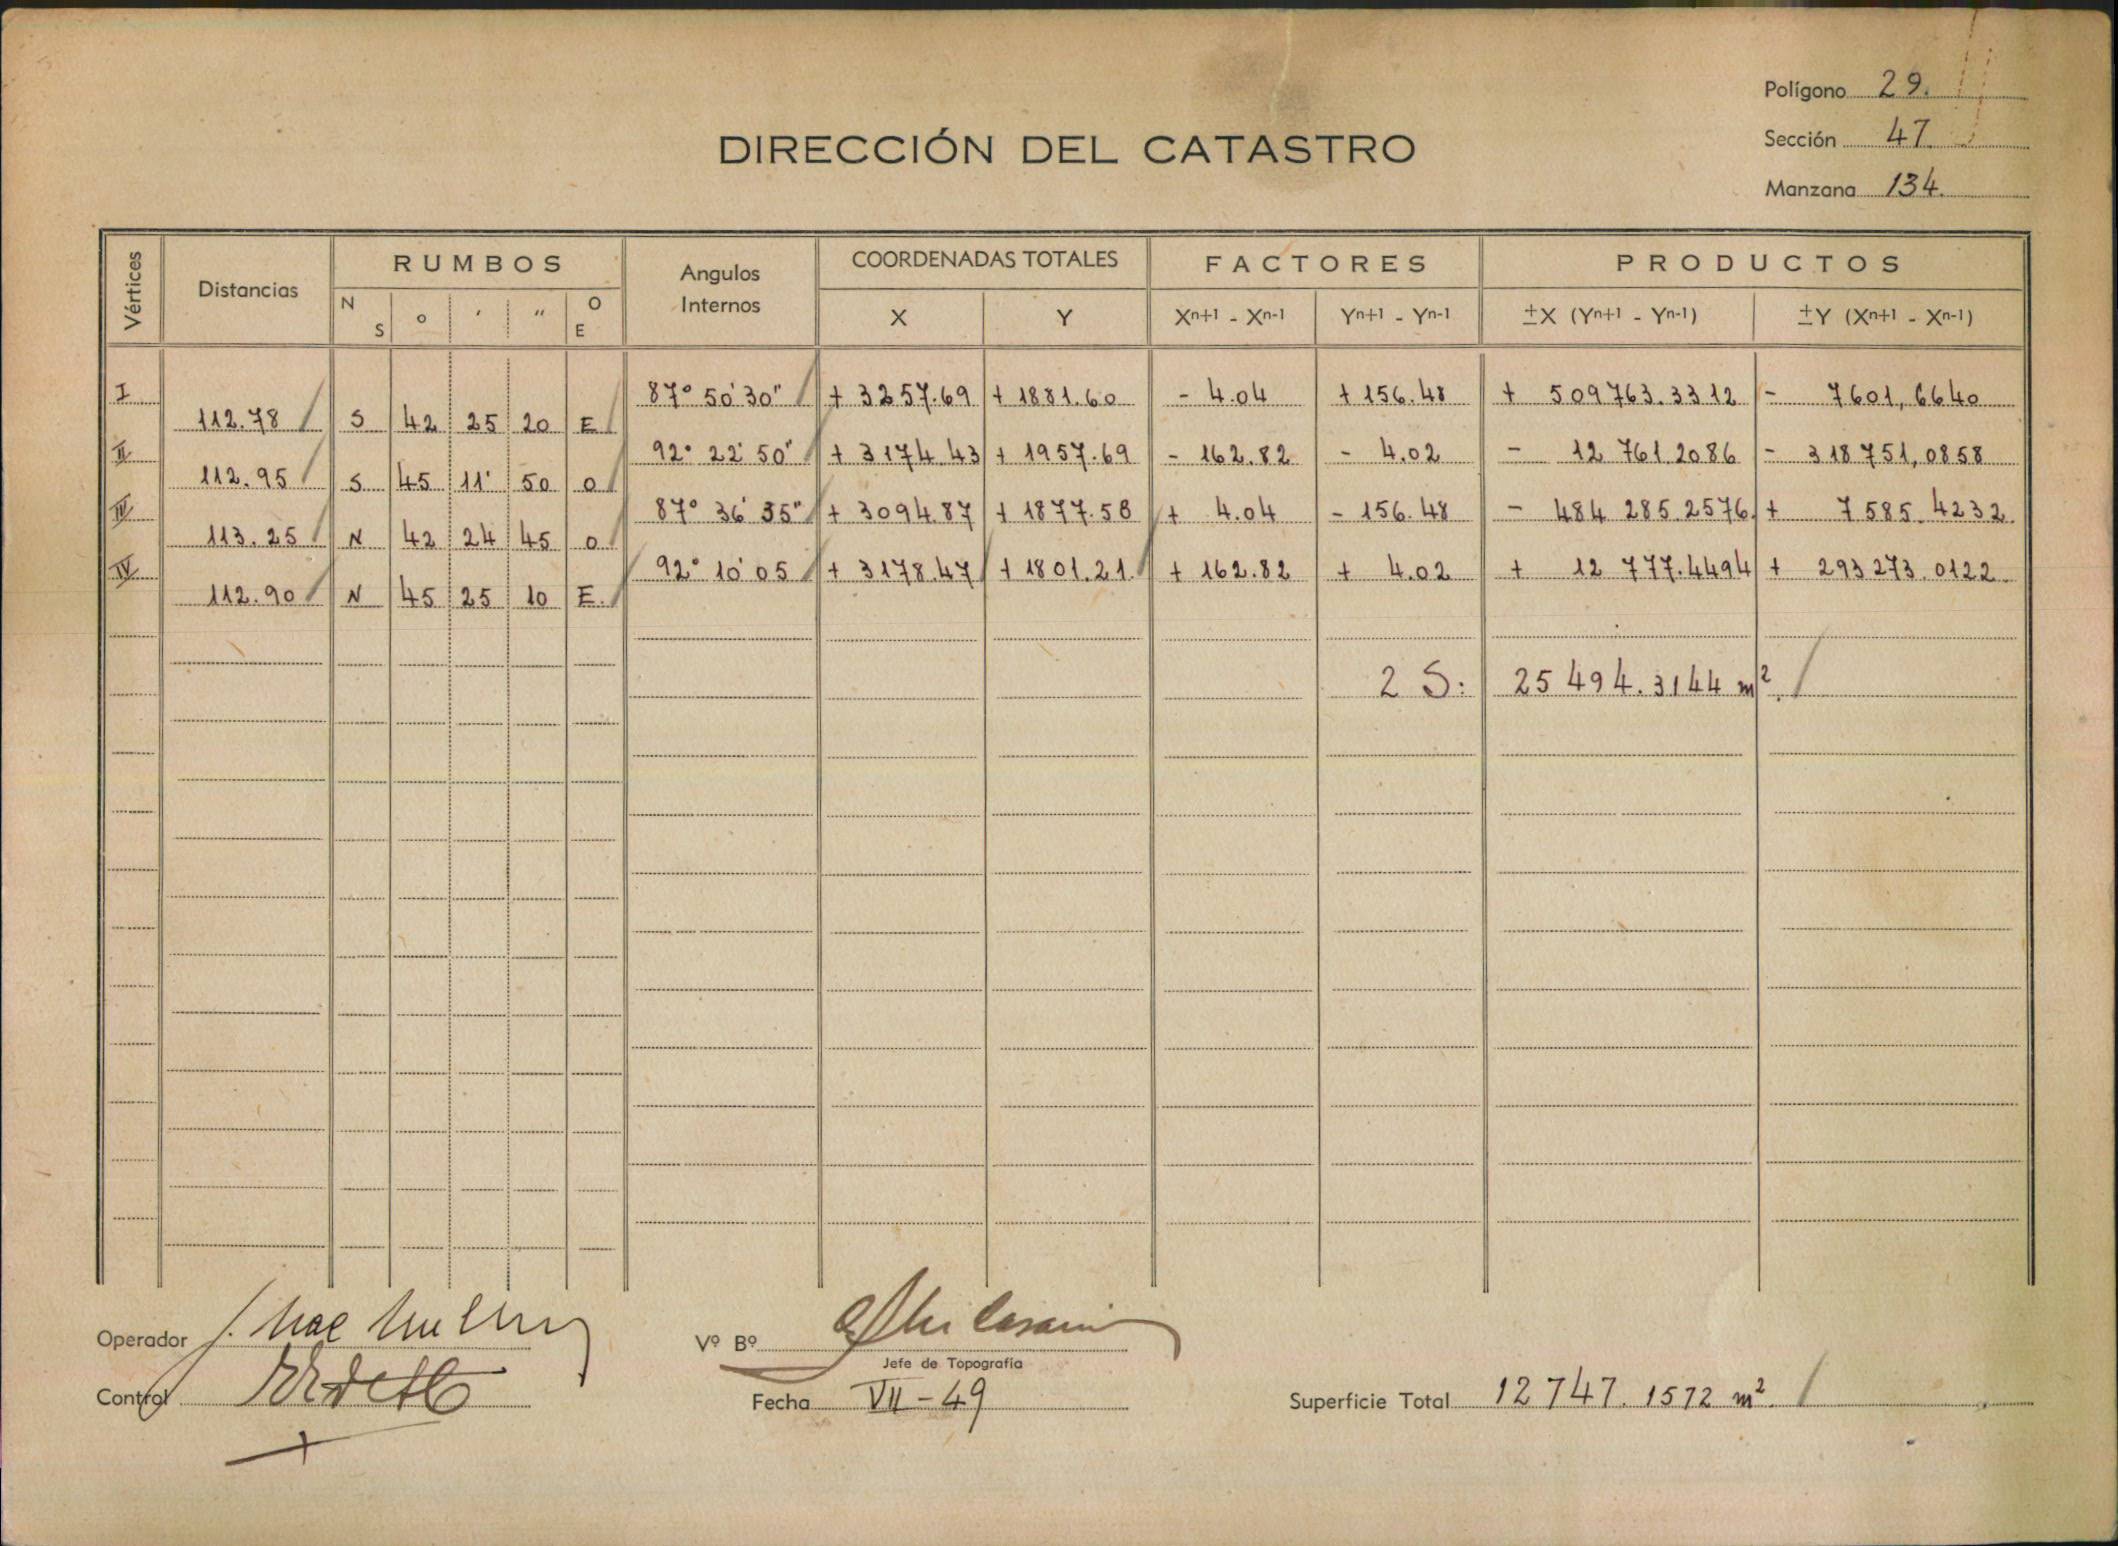 Polígono 29.
Sección 47
Manzana 134.
DIRECCIÓN DEL CATASTRO
Vértices Distancias RUMBOS Angulos Internos COORDENADAS TOTALES FACTORES PRODUCTOS
N S ° ' " O E X Y Xn+1 - Xn-1 Yn+1 - Yn-1 ±X (Yn+1 - Yn-1) ±Y (Xn+1 - Xn-1)
I 87° 50' 30" + 3257.69 + 1881.60 - 4.04 + 156.48 + 509763.3312 - 7601,6640
112.78 S 42 25 20 E
II 92° 22' 50" + 3174.43 + 1957.69 - 162.82 - 4.02 - 12 761.2086 - 318751,0858
112.95 S 45 11' 50 O
III 87° 36' 35" + 3094.87 + 1877.58 + 4.04 - 156.48 - 484 285.2576 + 7585.4232
113.25 N 42 24 45 O
IV 92° 10' 05 + 3178.47 + 1801.21 + 162.82 + 4.02 + 12 777.4494 + 293273.0122
112.90 N 45 25 10 E.
2 S: 25 494.3144 m².
Operador
Vº Bº
Jefe de Topografía
Control
Fecha VII - 49
Superficie Total 12747.1572 m².